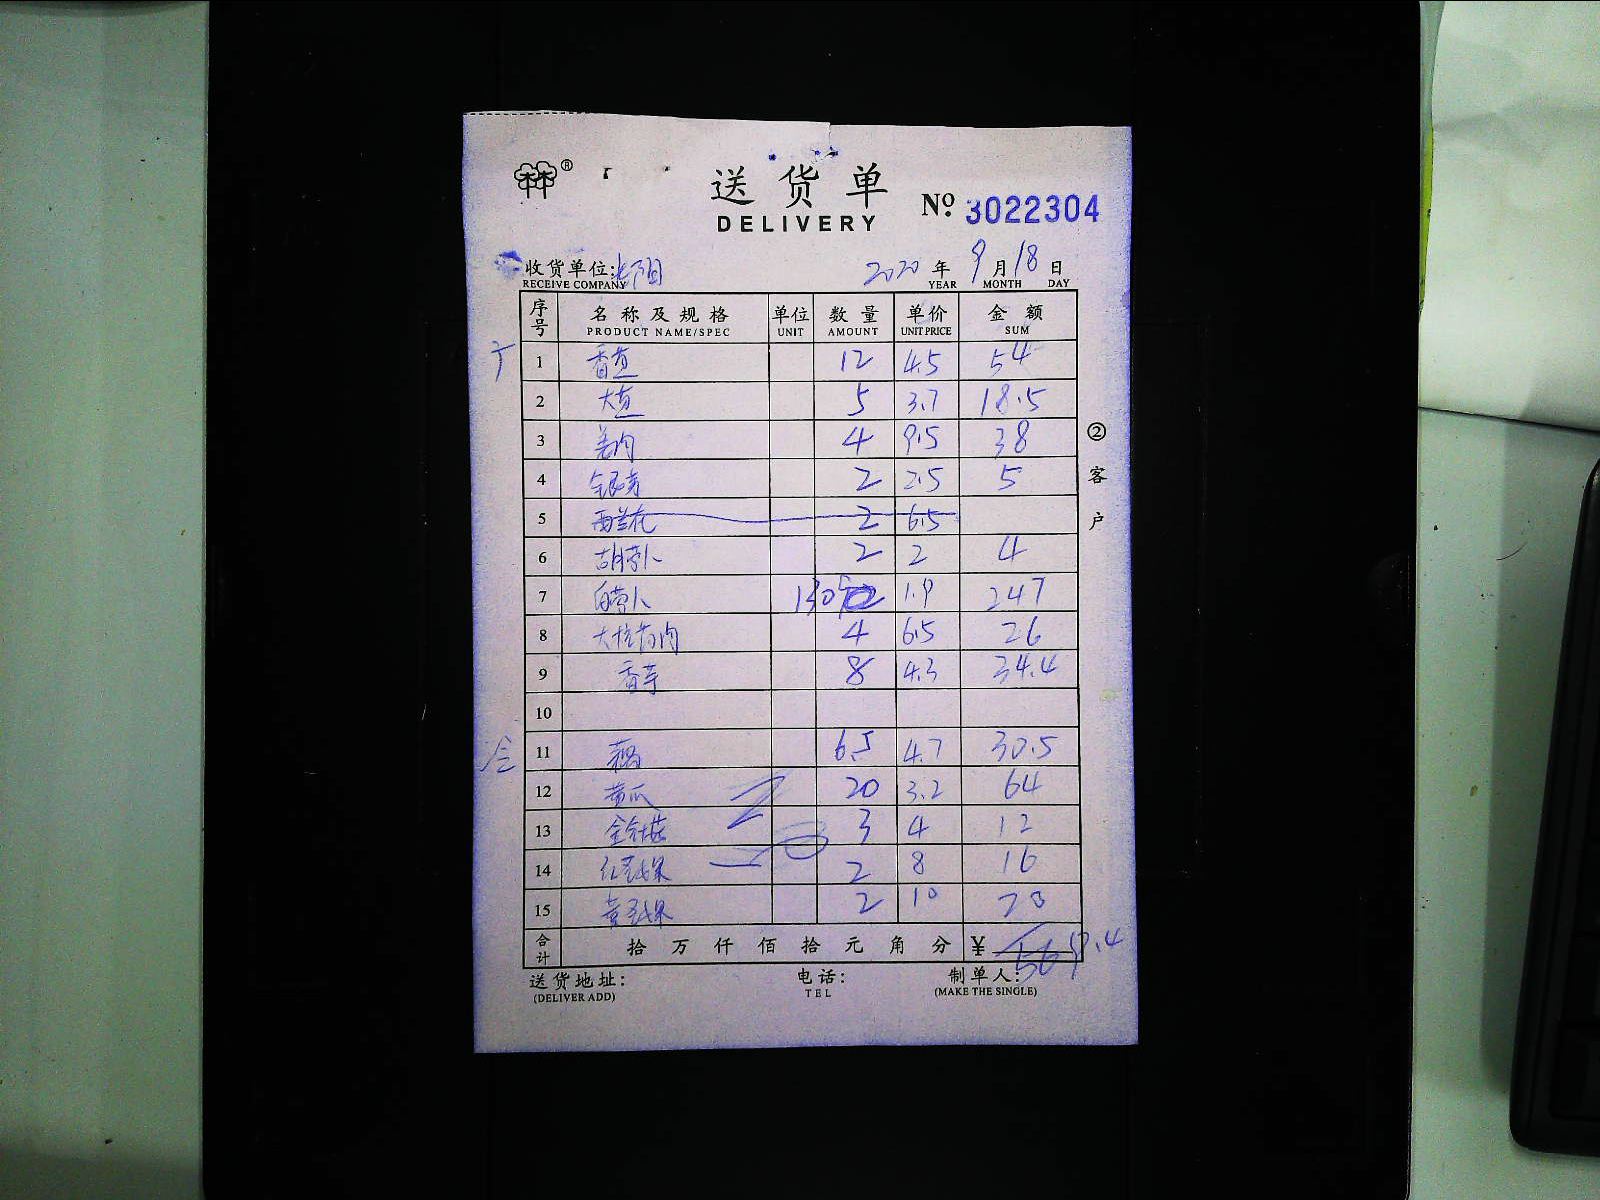 林® 送货单 No. 3022304
DELIVERY
收货单位: 2020 年 9 月 18 日
RECEIVE COMPANY YEAR MONTH DAY
序号 名称及规格 单位 数量 单价 金额
PRODUCT NAME/SPEC UNIT AMOUNT UNIT PRICE SUM
1 12 4.5 54
2 5 3.7 18.5
3 4 9.5 38
4 2 2.5 5
5 西兰花 2 6.5
6 胡萝卜 2 2 4
7 白萝卜 130 1.9 247
8 4 6.5 26
9 香芋 8 4.3 34.4
10
11 藕 6.5 4.7 30.5
12 黄瓜 20 3.2 64
13 金针菇 3 4 12
14 2 8 16
15 2 10 20
合计 拾 万 仟 佰 拾 元 角 分 ¥
送货地址: 电话: 制单人:
(DELIVER ADD) TEL (MAKE THE SINGLE)
②客户